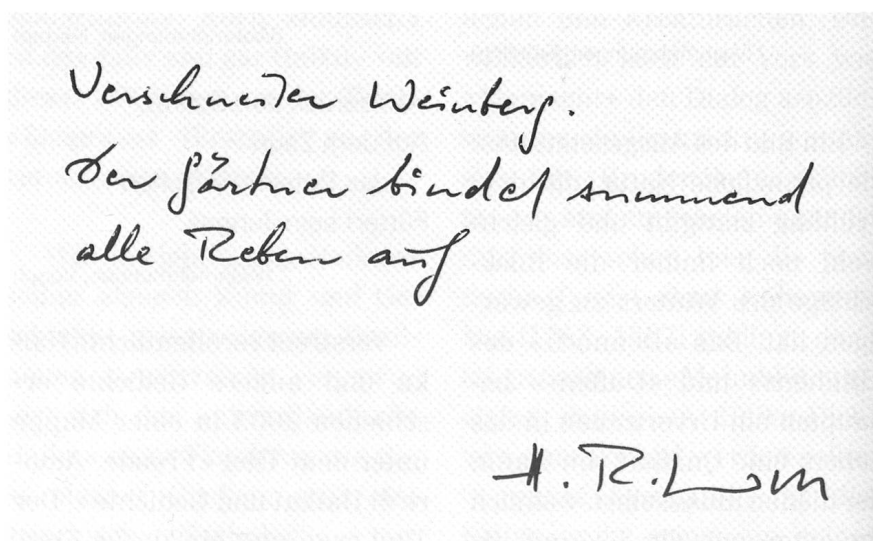 Verschneiter Weinberg.
Der Gärtner bindet summend
alle Reben auf
H. R.